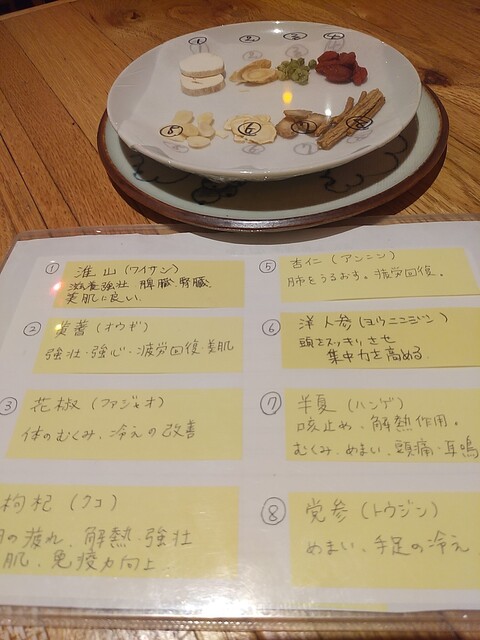 ① ② ③ ④
⑤ ⑥ ⑦ ⑧
① 淮山(ワイサン)
滋養強壮 脾臓、腎臓、
美肌に良い
② 黄蓍(オウギ)
強壮・強心・疲労回復・美肌
③ 花椒(ファジャオ)
体のむくみ、冷えの改善
枸杞(クコ)
の疲れ、解熱・強壮
肌、免疫力向上
⑤ 杏仁(アンニン)
肺をうるおす。疲労回復。
⑥ 洋人参(ヨウニンジン)
頭をスッキリさせ
集中力を高める
⑦ 半夏(ハンゲ)
咳止め、解熱作用。
むくみ、めまい、頭痛・耳鳴
⑧ 党参(トウジン)
めまい、手足の冷え